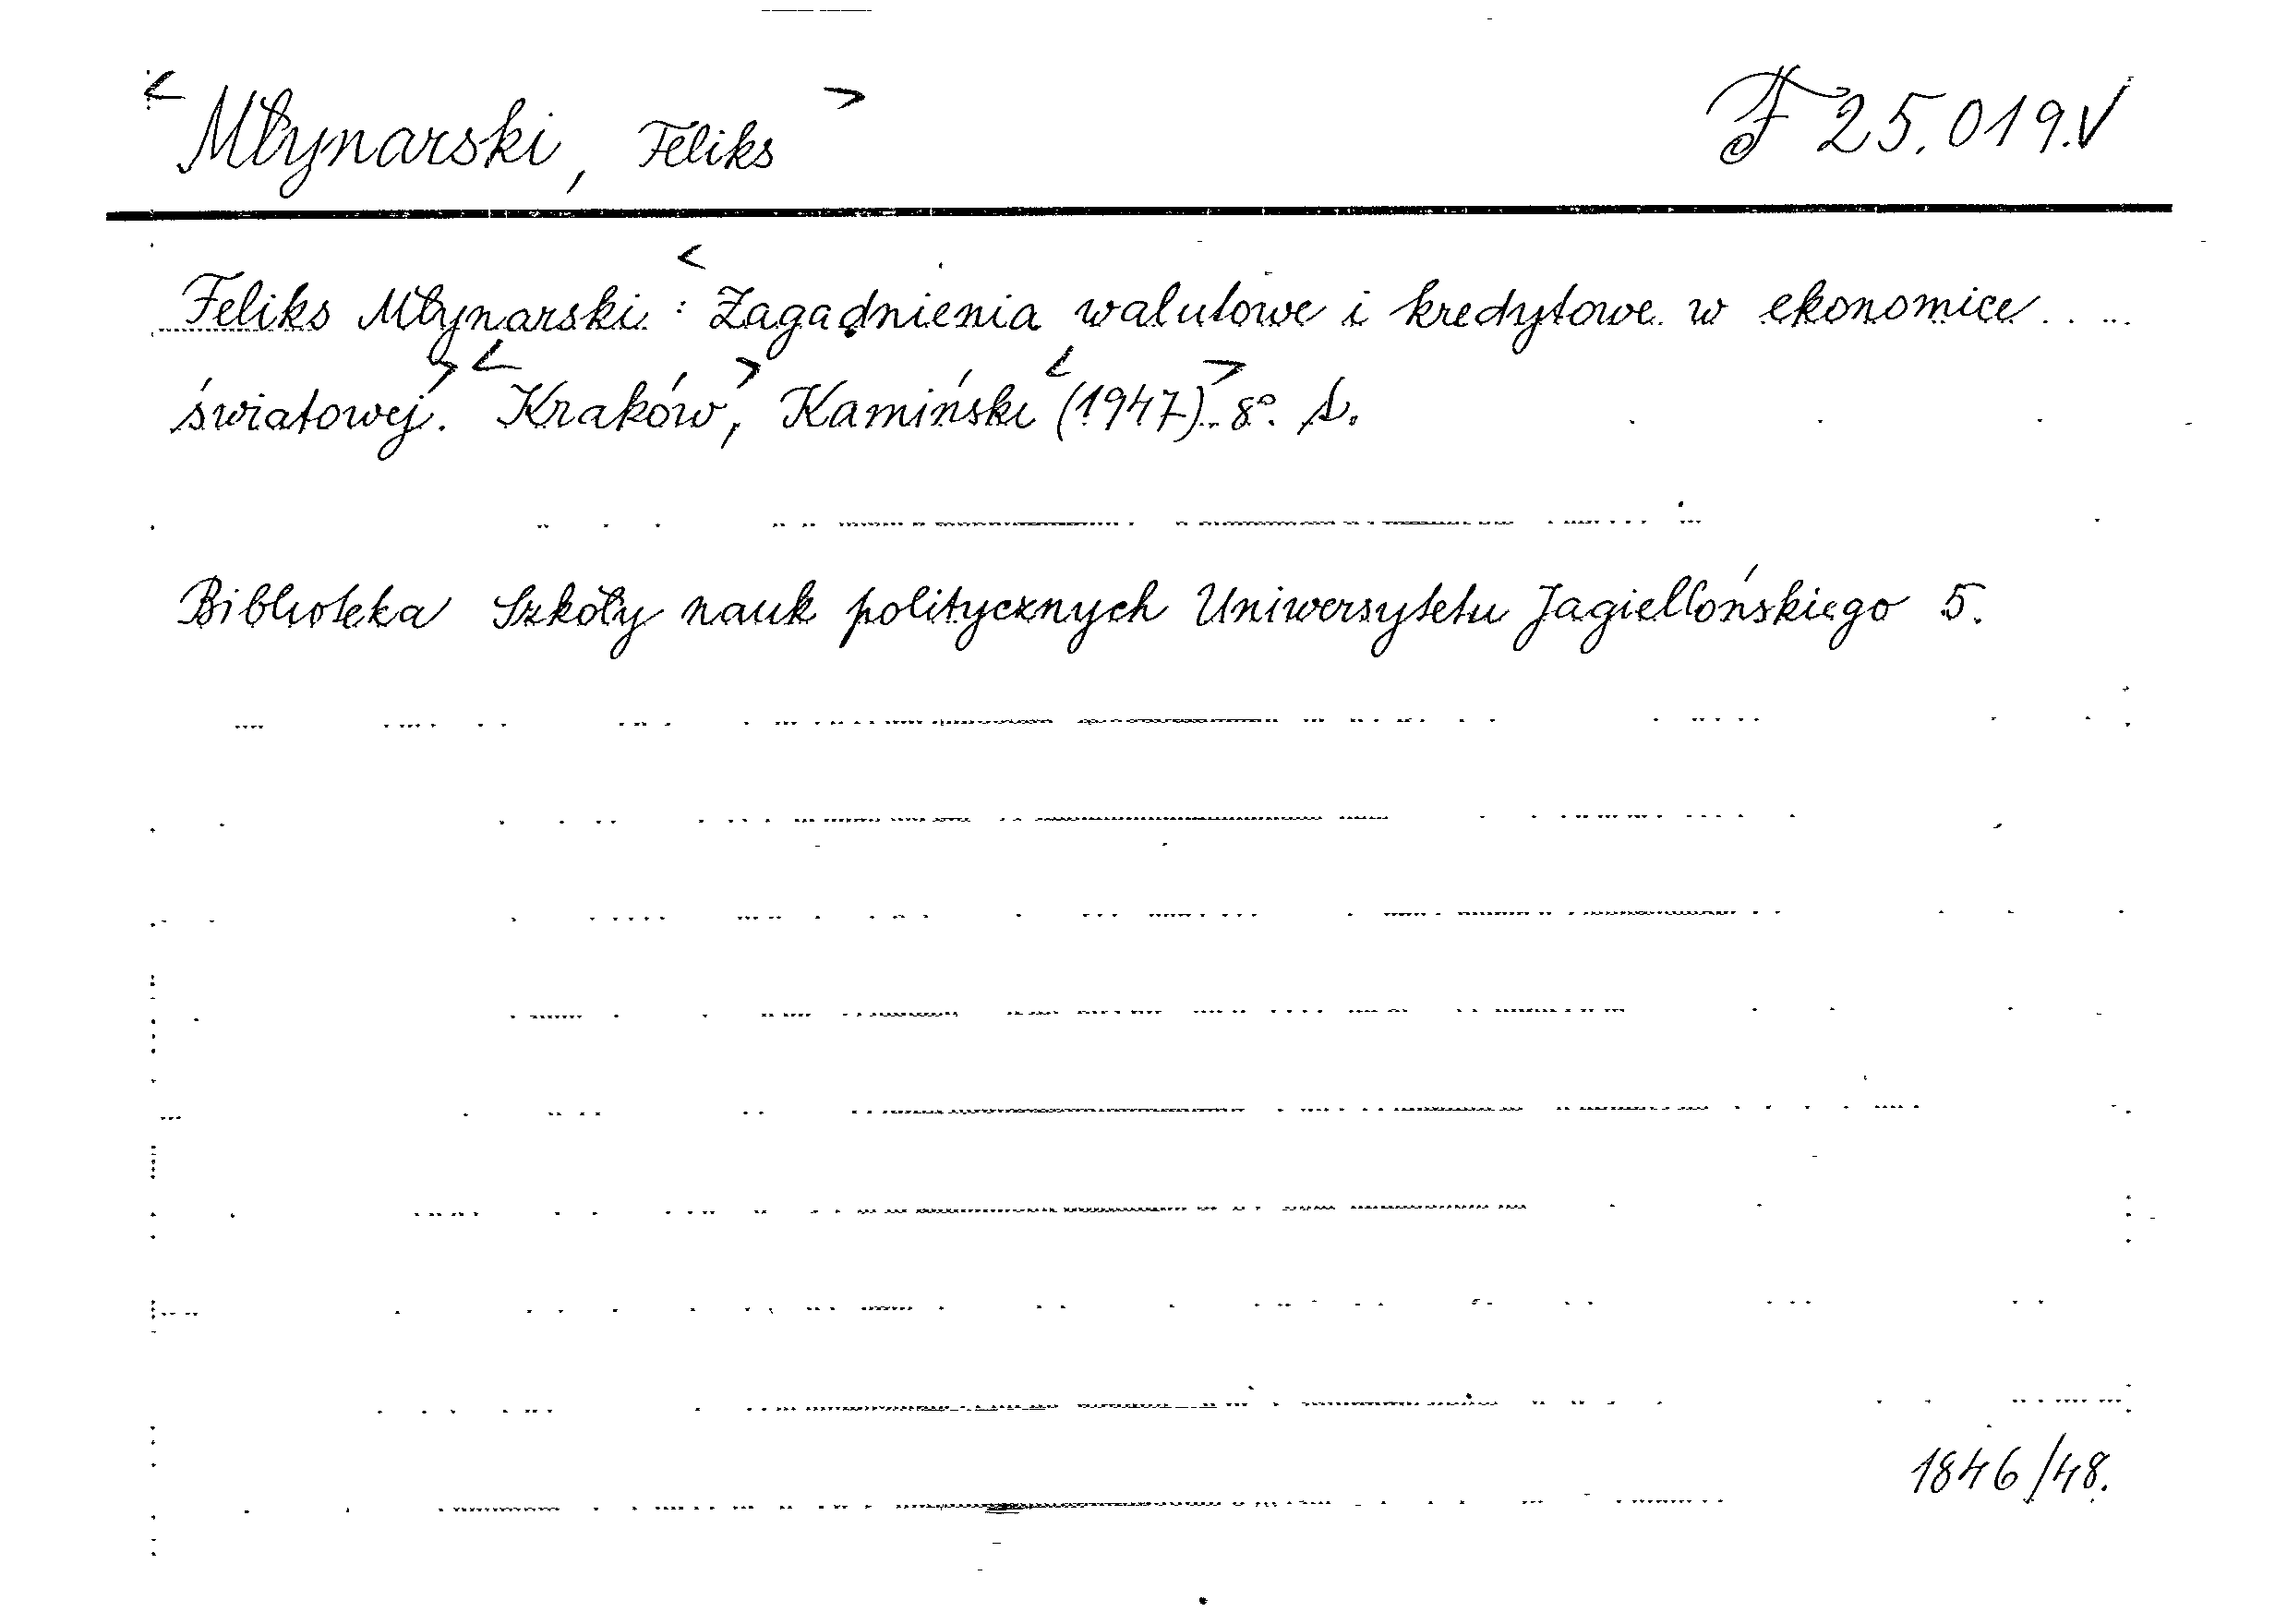 <Młynarski, Feliks> F 25.019.V
Feliks Młynarski: <Zagadnienia walutowe i kredytowe w ekonomice
światowej>. <Kraków>, Kamiński <(1947)>. 8°. S.
Biblioteka Szkoły nauk politycznych Uniwersytetu Jagiellońskiego 5.
1846/48.